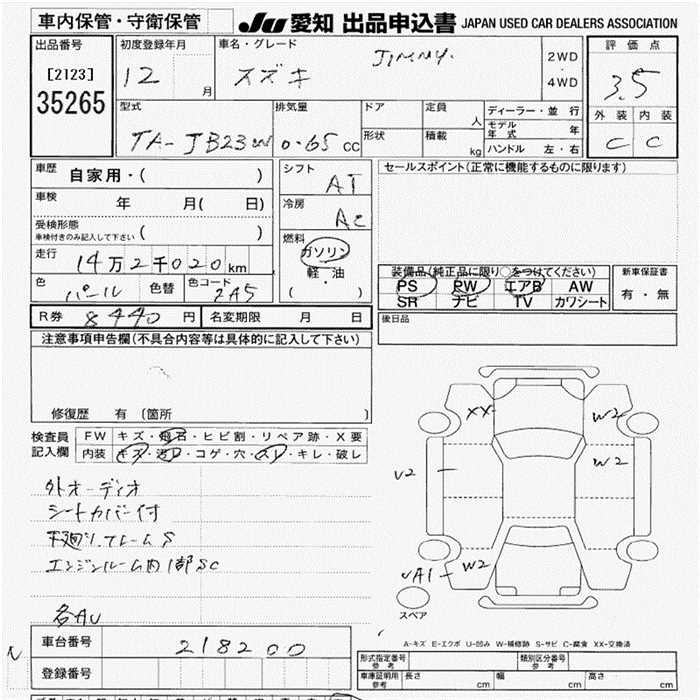 車内保管・守衛保管
JU 愛知 出品申込書 JAPAN USED CAR DEALERS ASSOCIATION
出品番号
[2123]
35265
初度登録年月
12 月
車名・グレード
スズキ JIMNY.
2WD
4WD
評価点
3.5
外装 内装
C C
型式
TA-JB23W
排気量
0.65 cc
ドア
形状
定員
人
積載
kg
ディーラー・並行
モデル年式 年
ハンドル 左・右
車歴
自家用・( )
車検
年 月( 日)
受検形態
車検付きのみ記入して下さい ( )
走行
14万2千020km
色
パール
色替
色コード
2A5
シフト
AT
冷房
AC
燃料
ガソリン
軽・油
( )
セールスポイント(正常に機能するものに限ります)
装備品(純正品に限り○をつけてください)
PS PW エアB AW
SR ナビ TV カワシート
新車保証書
有・無
R券 8440 円
名変期限 月 日
後日品
注意事項申告欄(不具合内容等は具体的に記入して下さい)
修復歴 有〔箇所 〕
検査員
記入欄
FW キズ・飛石・ヒビ割・リペア跡・X要
内装 キズ・汚レ・コゲ・穴・スレ・キレ・破レ
外オーディオ
シートカバー付
下廻り.フレームS
エンジンルーム内1部SC
各AU
XX
W2
U2
W2
UA1
W2
スペア
A-キズ E-エクボ U-凹み W-補修跡 S-サビ C-腐食 XX-交換済
N
車台番号
218200
登録番号
形式指定番号
参考
類別区分番号
参考
車庫証明用
参考
長さ cm
幅 cm
高さ cm